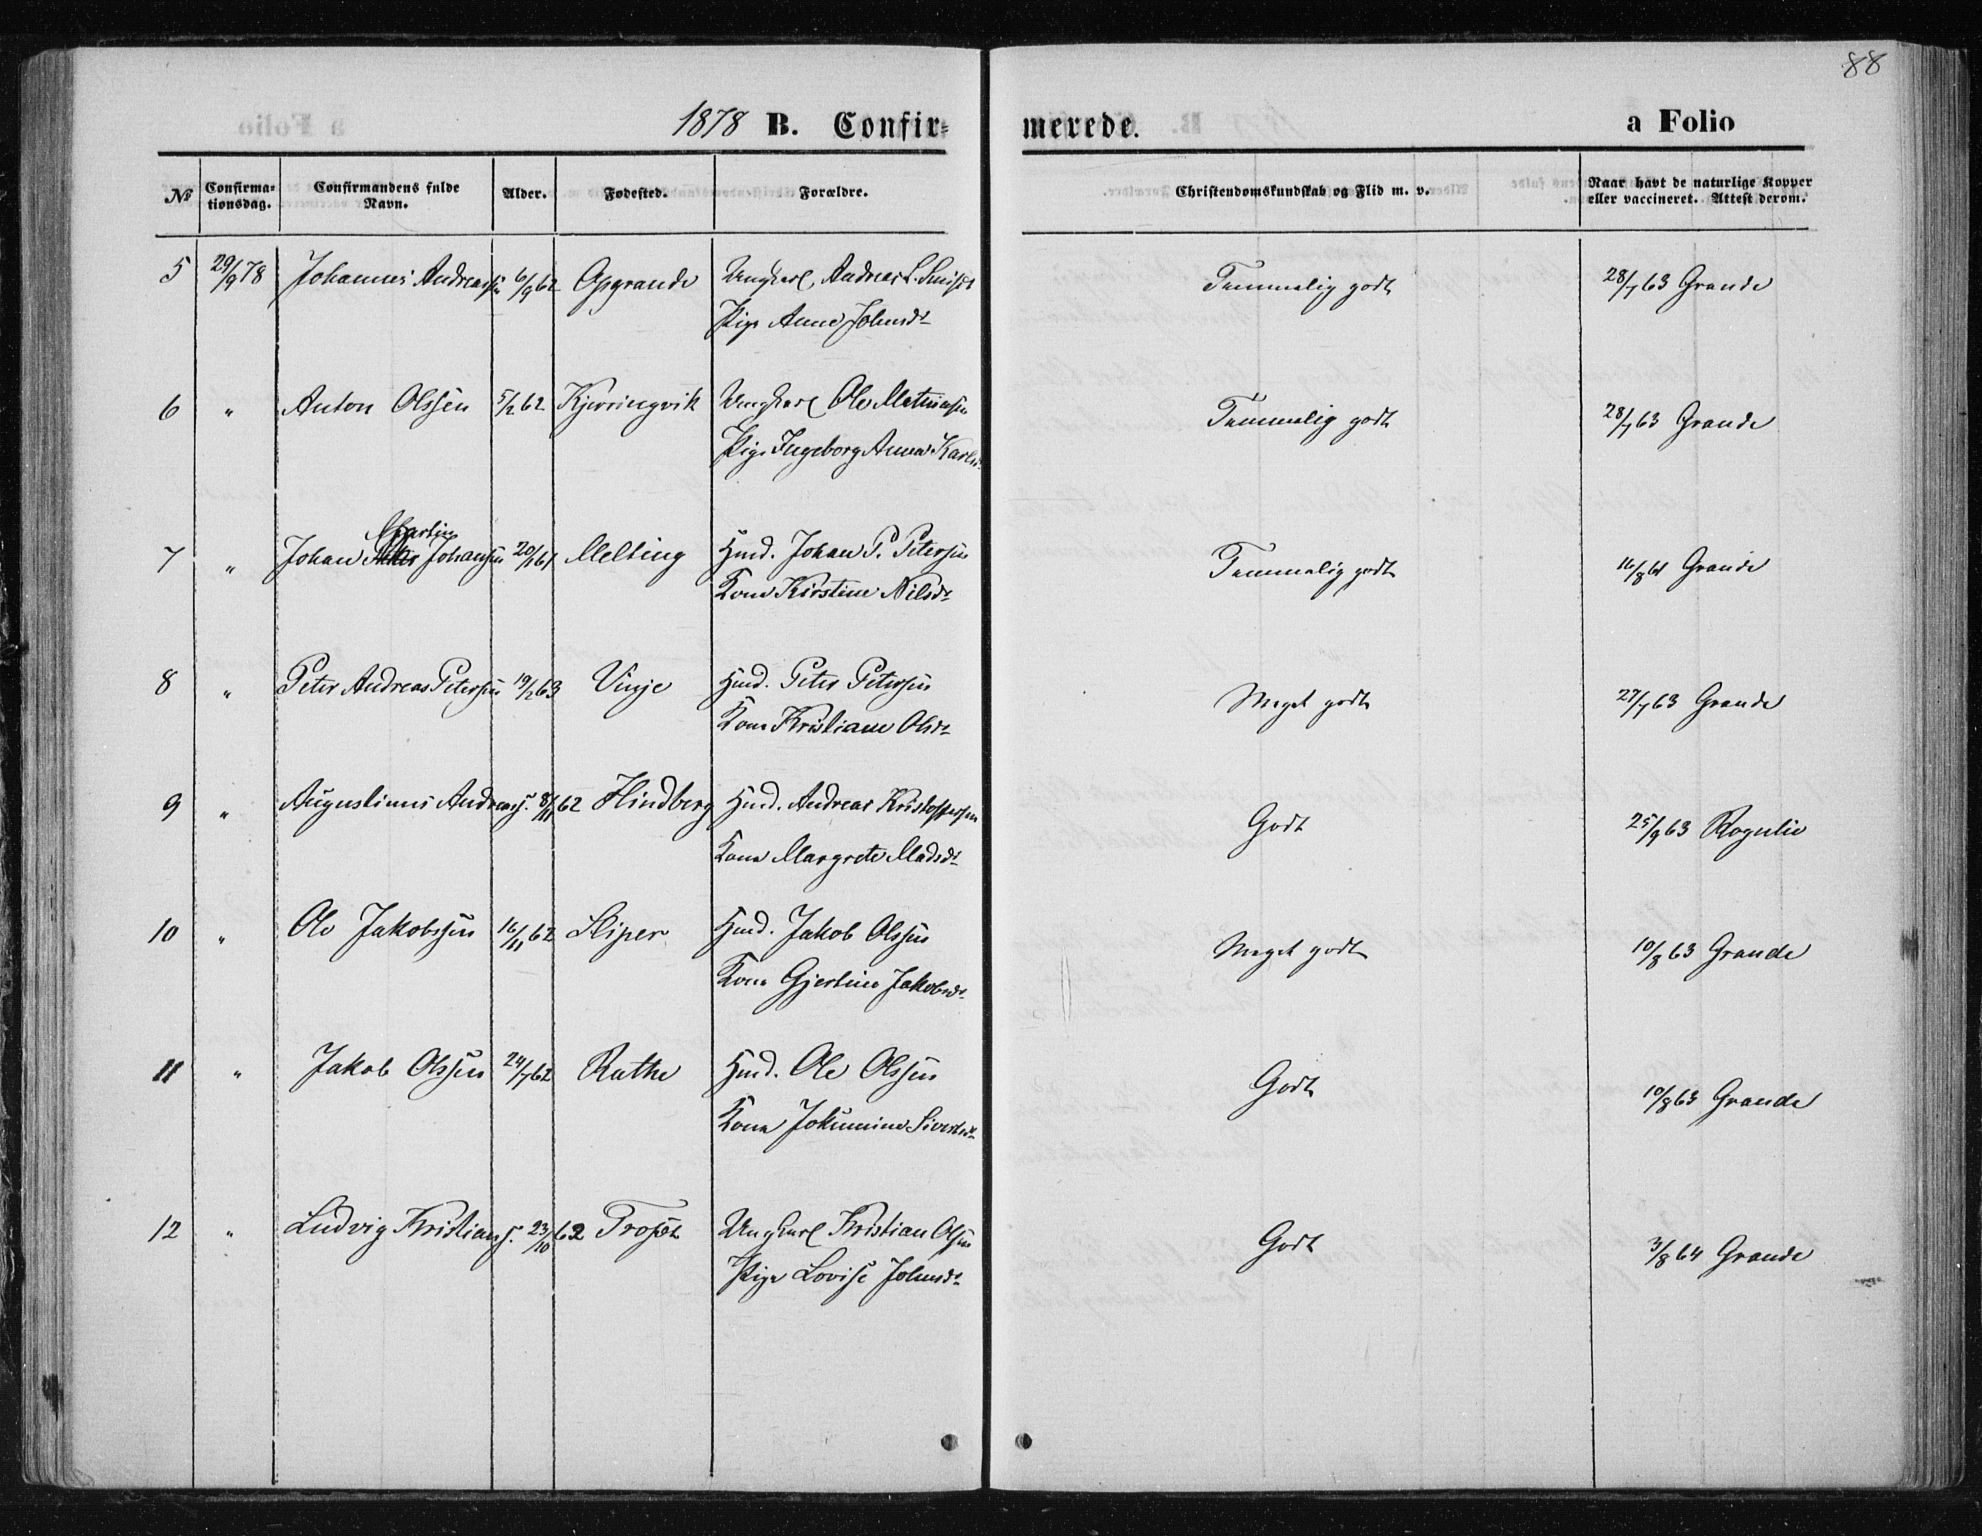 88
1878 B. Confir- merede. a Folio
No Confirma-tionsdag. Confirmandens fulde Navn. Alder. Fødested. Forældre. Christendomskundskab og Flid m. v. Naar havt de naturlige Kopper eller vaccineret. Attest derom.
5 29/9 78 Johannes Andreassen 6/9 62 Opgrande Ungkarl Andreas L. Tammelig godt 28/7 63 Grande
Pige Anne Johnsdr
6 " Anton Olssen 5/2 62 Kjerringvik Ungkarl Ole Tammelig godt 28/7 63 Grande
Pige Ingeborg Anna Karlsd.
Martin
7 " Johan Johansen 20/1 61 Melting Husmd. Johan P. Petersen Tammelig godt 16/8 61 Grande
Kone Kirstine Nilsdr
8 " Peter Andreas Petersen 19/2 63 Vinje Husmd. Peter Petersen Meget godt 27/7 63 Grande
Kone Kristiane Olsdr
9 " Augustinus Andreass. 8/11 62 Hindberg Husmd. Andreas Kristoffersen Godt 25/9 63 Rognlie
Kone Margrete Madsdr
10 " Ole Jakobssen 16/11 62 Sliper Husmd. Jakob Olssen Meget godt 10/8 63 Grande
Kone Gjertine Jakobsdr
11 " Jakob Olssen 24/7 62 Ruthe Husmd. Ole Olssen Godt 10/8 63 Grande
Kone Jokumine Sivertsdr
12 " Ludvig Kristians. 23/10 62 Trøset Ungkarl Kristian Olsen Godt 3/8 64 Grande
Pige Lovise Johnsdr